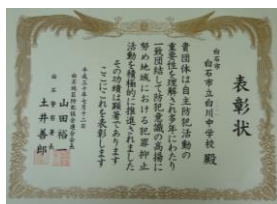 表彰状
白石市
白石市立白川中学校 殿
貴団体は自主防犯活動の
重要性を理解され多年にわたり
一致団結して防犯意識の高揚に
努め地域における犯罪抑止
活動を積極的に推進されました
その功績は顕著であります
ここにこれを表彰します
平成三十年七月十二日
白石地区防犯協会連合会長
山田裕一
白石警察署長
土井善郎